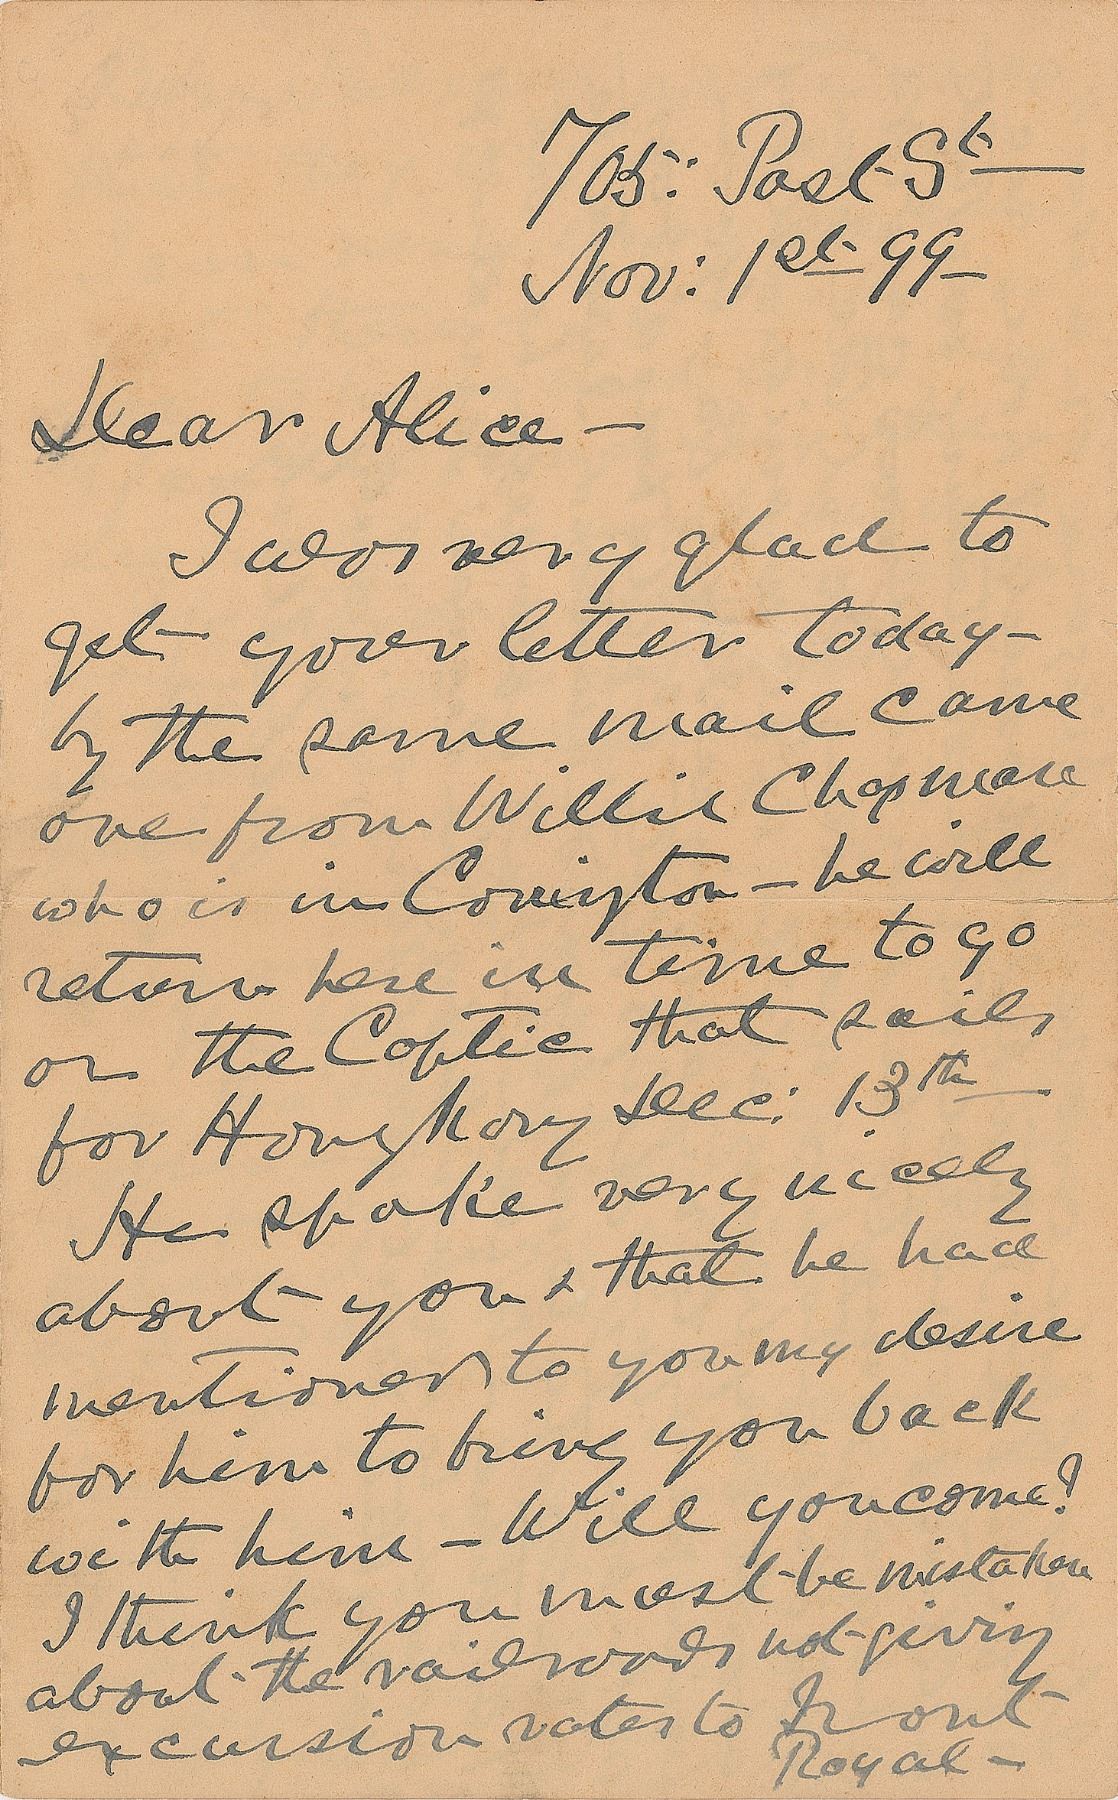 705: Post St
Nov: 1st 99
Dear Alice —
I was very glad to
get your letter today —
by the same mail came
one from Willis Chapman
who is in Covington — he will
return here in time to go
on the Coptic that sails
for Hongkong Dec: 13th
He spoke very nicely
about you & that he had
mentioned to you my desire
for him to bring you back
with him — Will you come?
I think you must be mistaken
about the railroads not giving
excursion rates to Front
Royal —